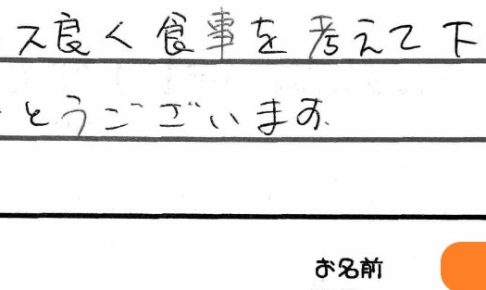 ス良く食事を考えて下
とうございます.
お名前